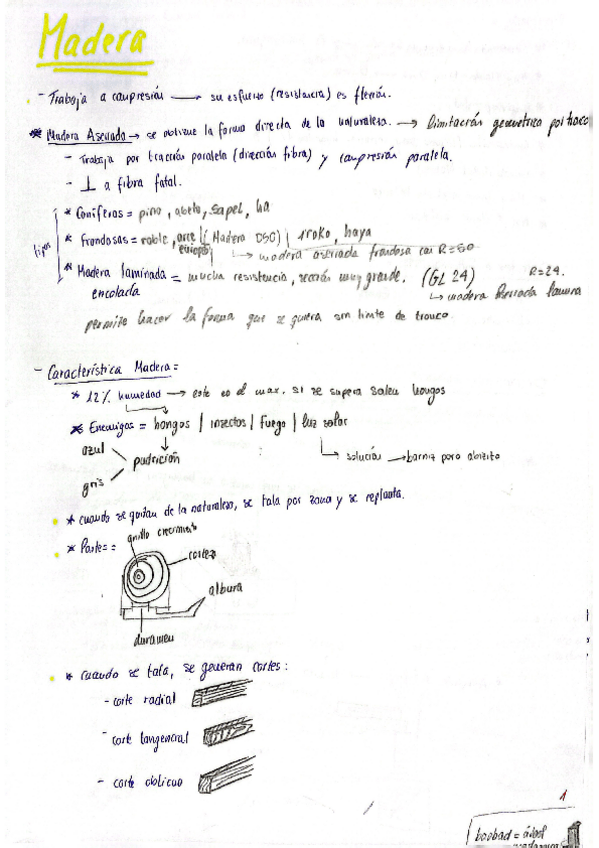 Madera
- Trabaja a compresión → su esfuerzo (resistencia) es flexión.
* Madera Aserrada → se obtiene la forma directa de la naturaleza. → limitación geometrica por tronco
- Trabaja por tracción paralela (dirección fibra) y compresión paralela.
- ⊥ a fibra fatal.
tipos
* Coníferas = pino, abeto, sapel,
* Frondosas = roble, arce europeo (Madera D50) | iroko, haya
↳ madera aserrada frondosa con R=50
* Madera laminada encolada = mucha resistencia, sección muy grande. (GL 24) R=24.
↳ madera
permite hacer la forma que se quiera sin limite de tronco.
- Característica Madera =
* 12% humedad → este es el max. si se supera salen hongos
* Enemigos = hongos | insectos | fuego | luz solar
azul
gris
pudrición
↳ solución → barniz poro abierto
* cuando se quitan de la naturaleza, se tala por zona y se replanta.
* Partes =
anillo crecimiento
corteza
albura
duramen
* cuando se tala, se generan cortes:
- corte radial
- corte tangencial
- corte oblicuo
1
baobad = árbol